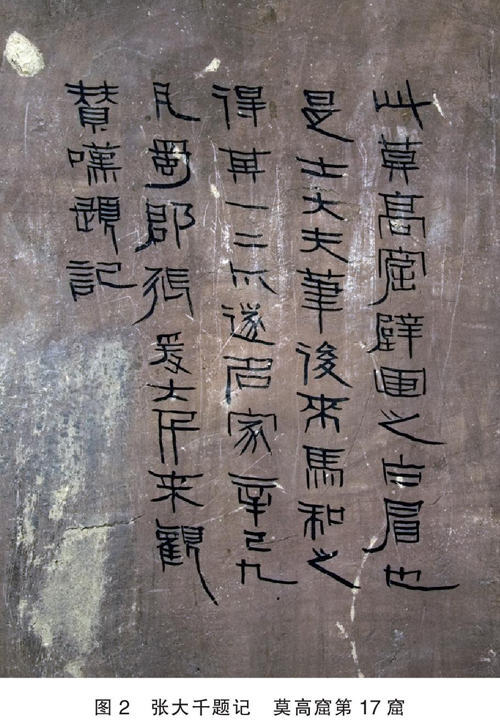 此莫高窟壁画之白眉也
是士大夫筆後來馬和之
得其一二遂名家辛巳九
月蜀郡張爰大千来觀
贊嘆題記
图 2 张大千题记 莫高窟第 17 窟